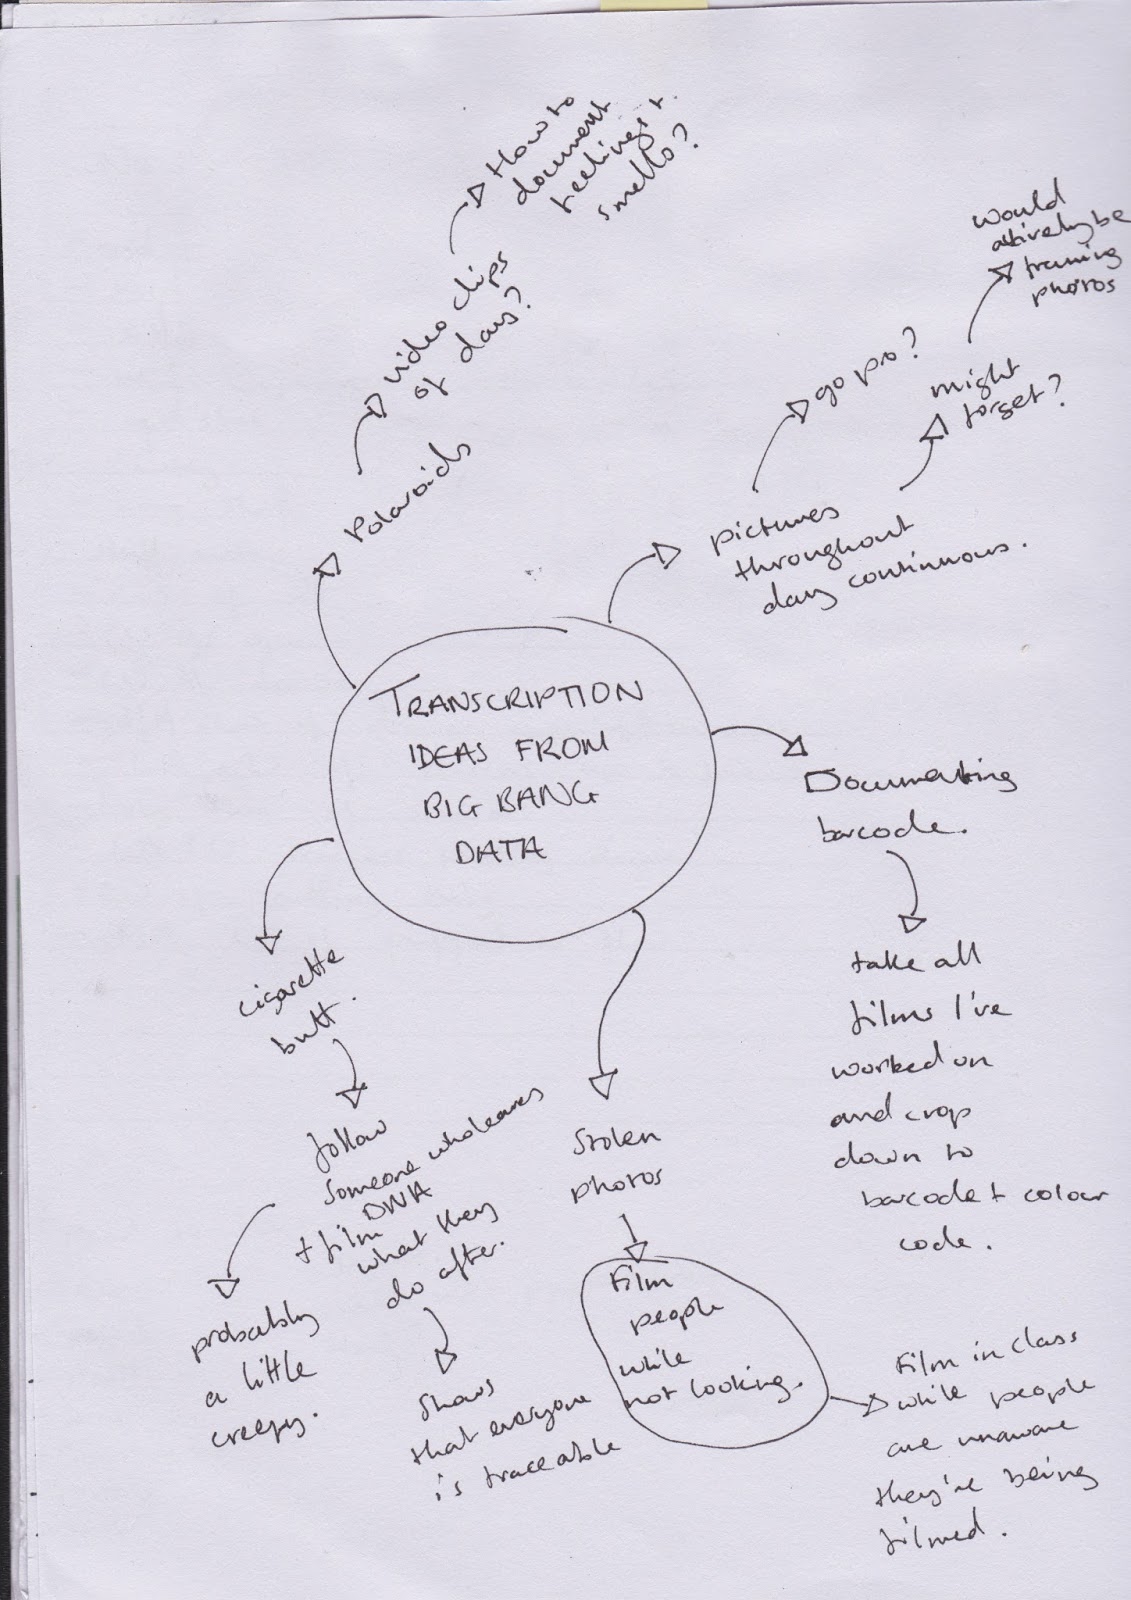 TRANSCRIPTION
IDEAS FROM
BIG BANG
DATA
Polaroids
video clips
of days?
How to
document
feelings +
smells?
pictures
throughout
day continuous.
go pro?
might
forget?
would
actively be
framing
photos
Documenting
barcode.
take all
films I've
worked on
and crop
down to
barcode + colour
code.
Stolen
photos
Film
people
while
not looking.
Film in class
while people
are unaware
they're being
filmed.
cigarette
butt.
follow
someone who leaves
DNA
+ film
what they
do after.
probably
a little
creepy.
Shows
that everyone
is traceable